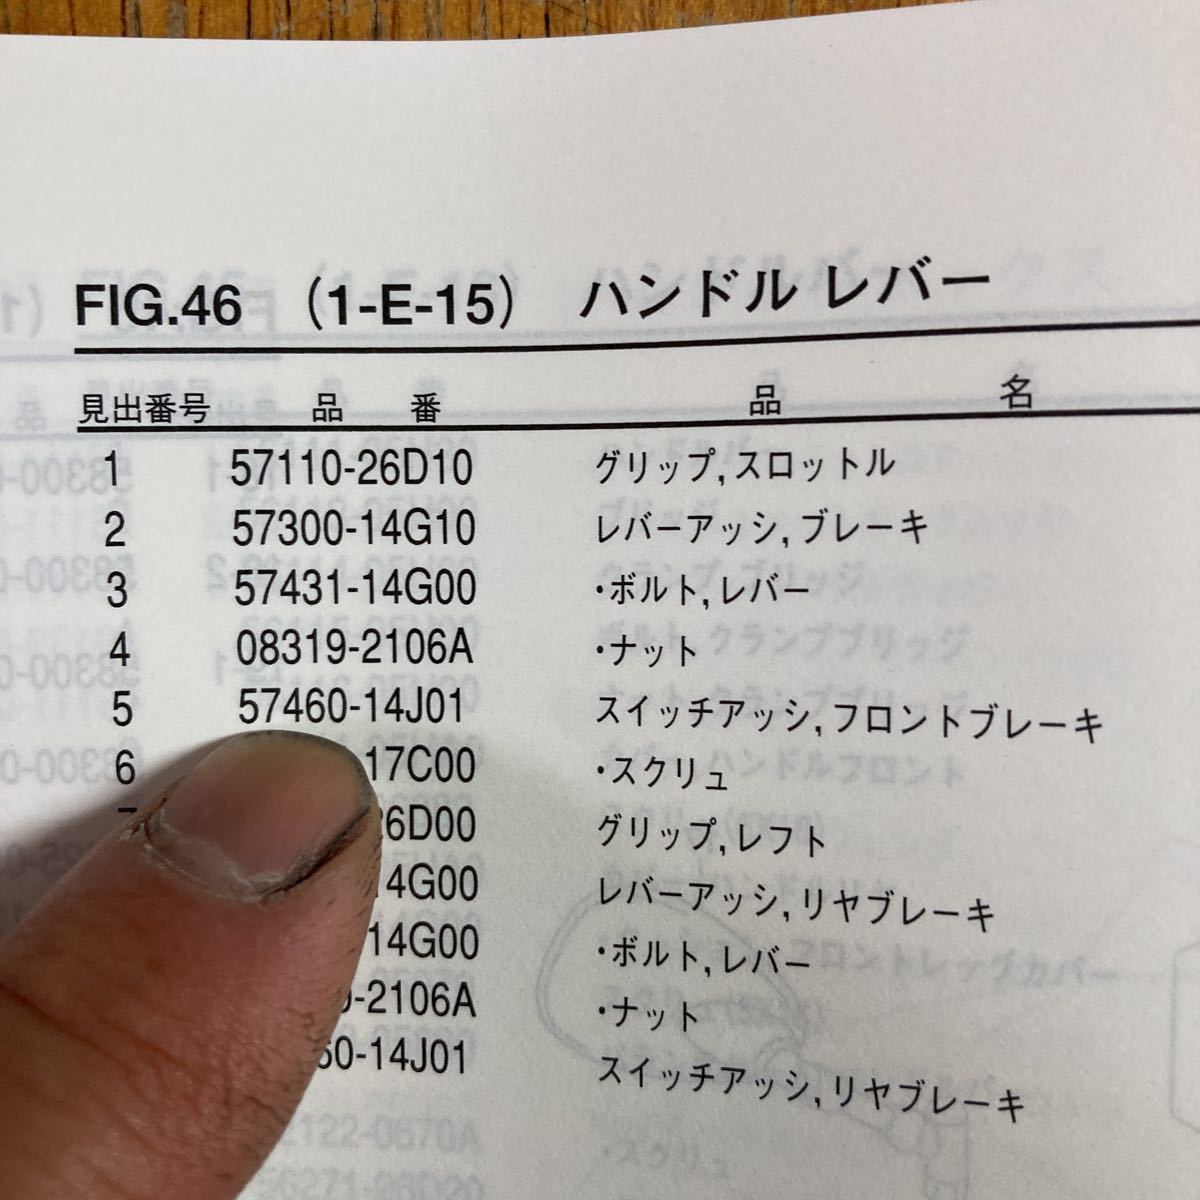 FIG.46 (1-E-15) ハンドル レバー
見出番号 品 番 品 名
1 57110-26D10 グリップ,スロットル
2 57300-14G10 レバーアッシ,ブレーキ
3 57431-14G00 ・ボルト,レバー
4 08319-2106A ・ナット
5 57460-14J01 スイッチアッシ,フロントブレーキ
6 17C00 ・スクリュ
6D00 グリップ,レフト
4G00 レバーアッシ,リヤブレーキ
14G00 ・ボルト,レバー
-2106A ・ナット
60-14J01 スイッチアッシ,リヤブレーキ
122-0670A ・スクリュ